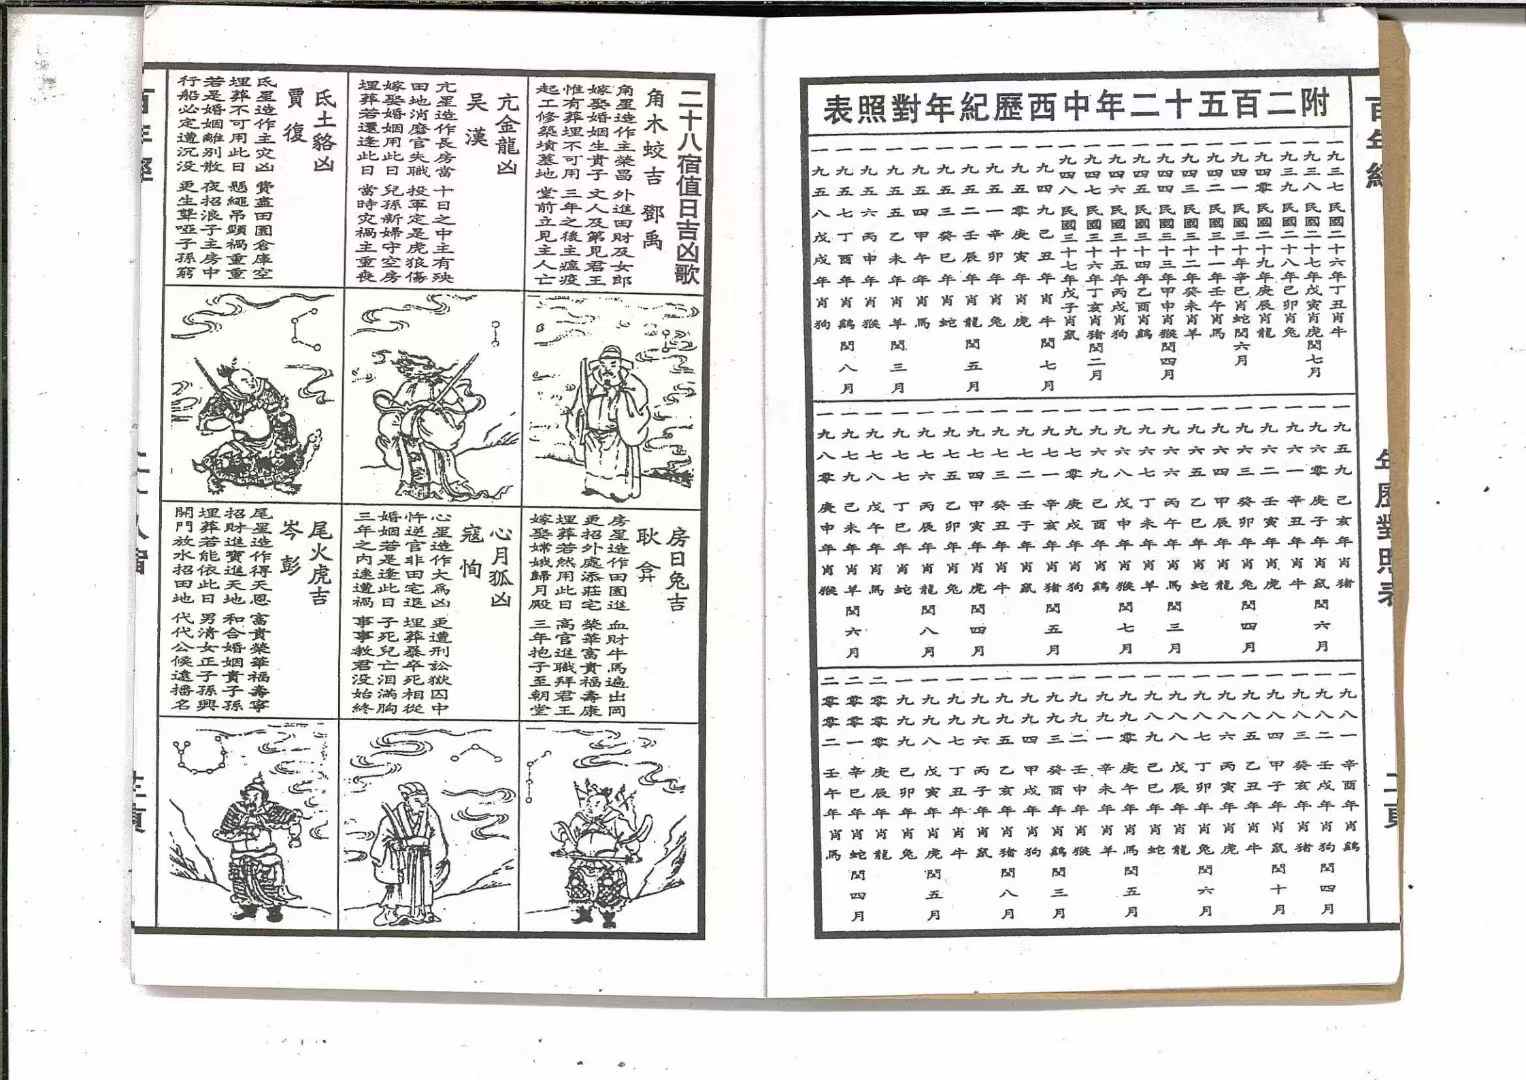 百年經
年歷對照表
二頁
附二百五十二年中西歷紀年對照表
一九三七民國二十六年丁丑肖牛
一九三八民國二十七年戊寅肖虎閏七月
一九三九民國二十八年己卯肖兔
一九四零民國二十九年庚辰肖龍
一九四一民國三十年辛巳肖蛇閏六月
一九四二民國三十一年壬午肖馬
一九四三民國三十二年癸未肖羊
一九四四民國三十三年甲申肖猴閏四月
一九四四民國三十四年乙酉肖鷄
一九四六民國三十五年丙戌肖狗
一九四七民國三十六年丁亥肖猪閏二月
一九四八民國三十七年戊子肖鼠
一九四九己丑年肖牛閏七月
一九五零庚寅年肖虎
一九五一辛卯年肖兔
一九五二壬辰年肖龍閏五月
一九五三癸巳年肖蛇
一九五四甲午年肖馬
一九五五乙未年肖羊閏三月
一九五六丙申年肖猴
一九五七丁酉年肖鷄閏八月
一九五八戊戌年肖狗
一九五九己亥年肖猪
一九六零庚子年肖鼠閏六月
一九六一辛丑年肖牛
一九六二壬寅年肖虎
一九六三癸卯年肖兔閏四月
一九六四甲辰年肖龍
一九六五乙巳年肖蛇
一九六六丙午年肖馬閏三月
一九六七丁未年肖羊
一九六八戊申年肖猴閏七月
一九六九己酉年肖鷄
一九七零庚戌年肖狗
一九七一辛亥年肖猪閏五月
一九七二壬子年肖鼠
一九七三癸丑年肖牛
一九七四甲寅年肖虎閏四月
一九七五乙卯年肖兔
一九七六丙辰年肖龍閏八月
一九七七丁巳年肖蛇
一九七八戊午年肖馬
一九七九己未年肖羊閏六月
一九八零庚申年肖猴
一九八一辛酉年肖鷄
一九八二壬戌年肖狗閏四月
一九八三癸亥年肖猪
一九八四甲子年肖鼠閏十月
一九八五乙丑年肖牛
一九八六丙寅年肖虎
一九八七丁卯年肖兔閏六月
一九八八戊辰年肖龍
一九八九己巳年肖蛇
一九九零庚午年肖馬閏五月
一九九一辛未年肖羊
一九九二壬申年肖猴
一九九三癸酉年肖鷄閏三月
一九九四甲戌年肖狗
一九九五乙亥年肖猪閏八月
一九九六丙子年肖鼠
一九九七丁丑年肖牛
一九九八戊寅年肖虎閏五月
一九九九己卯年肖兔
二零零零庚辰年肖龍
二零零一辛巳年肖蛇閏四月
二零零二壬午年肖馬
二十八宿值日吉凶歌
角木蛟吉 鄧禹
角星造作主榮昌 外進田財及女郎
嫁娶婚姻生貴子 文人及第見君王
惟有葬埋不可用 三年之後主瘟疫
起工修築墳墓地 堂前立見主人亡
亢金龍凶
吳漢
亢星造作長房當 十日之中主有殃
田地消磨官失職 投軍定是虎狼傷
嫁娶婚姻用此日 兒孫新婦守空房
埋葬若還逢此日 當時灾禍主重喪
氐土貉凶
賈復
氐星造作主灾凶 費盡田園倉庫空
埋葬不可用此日 懸繩吊頸禍重重
若是婚姻離別散 夜招浪子主房中
行船必定遭沉没 更生聾啞子孫窮
房日兔吉
耿弇
房星造作田園進 血財牛馬遍出岡
更招外處添莊宅 榮華富貴福壽康
埋葬若然用此日 高官進職拜君王
嫁娶嫦娥歸月殿 三年抱子至朝堂
心月狐凶
寇恂
心星造作大爲凶 更遭刑訟獄囚中
忤逆官非田宅退 埋葬暴卒死相從
婚姻若是逢此日 子死兒亡泪滿胸
三年之内連遭禍 事事教君没始終
尾火虎吉
岑彭
尾星造作得天恩 富貴榮華福壽寧
招財進寶進天地 和合婚姻貴子孫
埋葬若能依此日 男清女正子孫興
開門放水招田地 代代公候遠播名